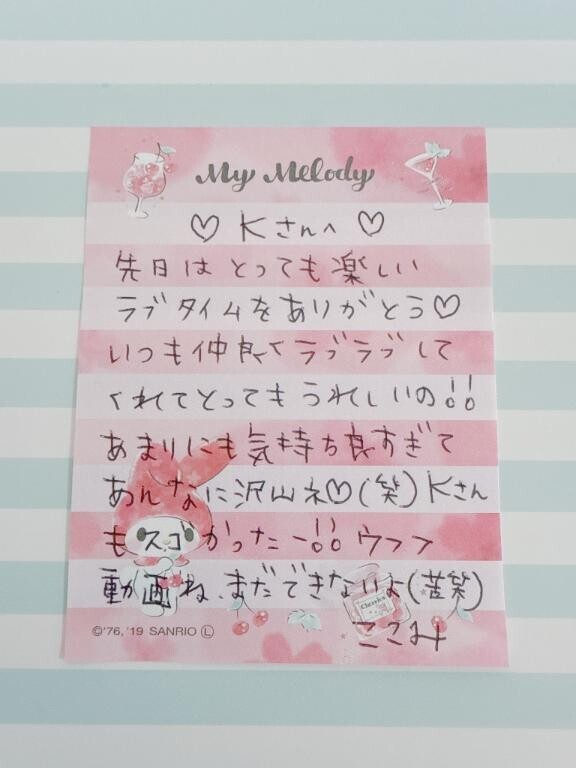 My Melody
♡ Kさんへ ♡
先日はとっても楽しい
ラブタイムをありがとう♡
いつも仲良くラブラブして
くれてとってもうれしいの!!
あまりにも気持ち良すぎて
あんなに沢山ネ♡(笑)Kさん
もスゴかったー!!ウフフ
動画ね、まだできないよ(苦笑)
Cherries
©'76,'19 SANRIO Ⓛ
ここみ